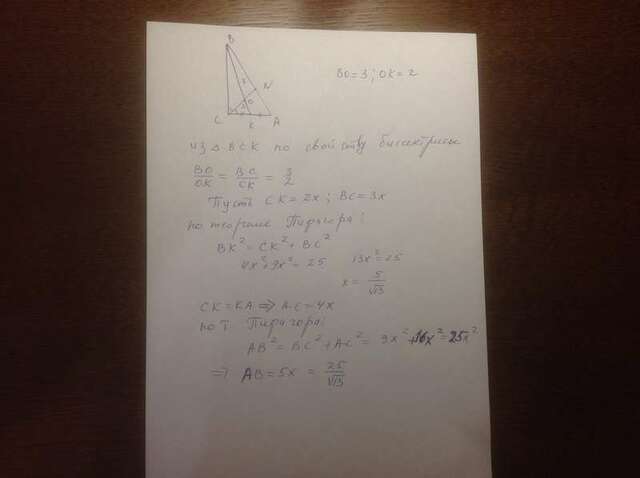 B
3
N
2
O
C K A
BO=3; OK=2
из △ BCK по свойству биссектрисы
BO/OK = BC/CK = 3/2
Пусть CK=2x; BC=3x
по теореме Пифагора:
BK² = CK² + BC²
4x²+9x² = 25 13x²=25
x = 5/√13
CK=KA ⇒ AC=4x
по т Пифагора:
AB² = BC² + AC² = 9x²+16x²=25x²
⇒ AB=5x = 25/√13